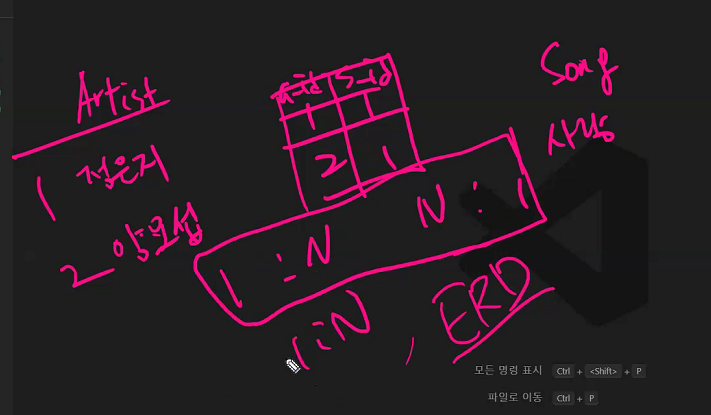 Artist
1 정은지
2 양요섭
a-id s-id
1 1
2 1
Song
사랑
1 : N N : 1
1:N , ERD
모든 명령 표시 Ctrl + <Shift> + P
파일로 이동 Ctrl + P